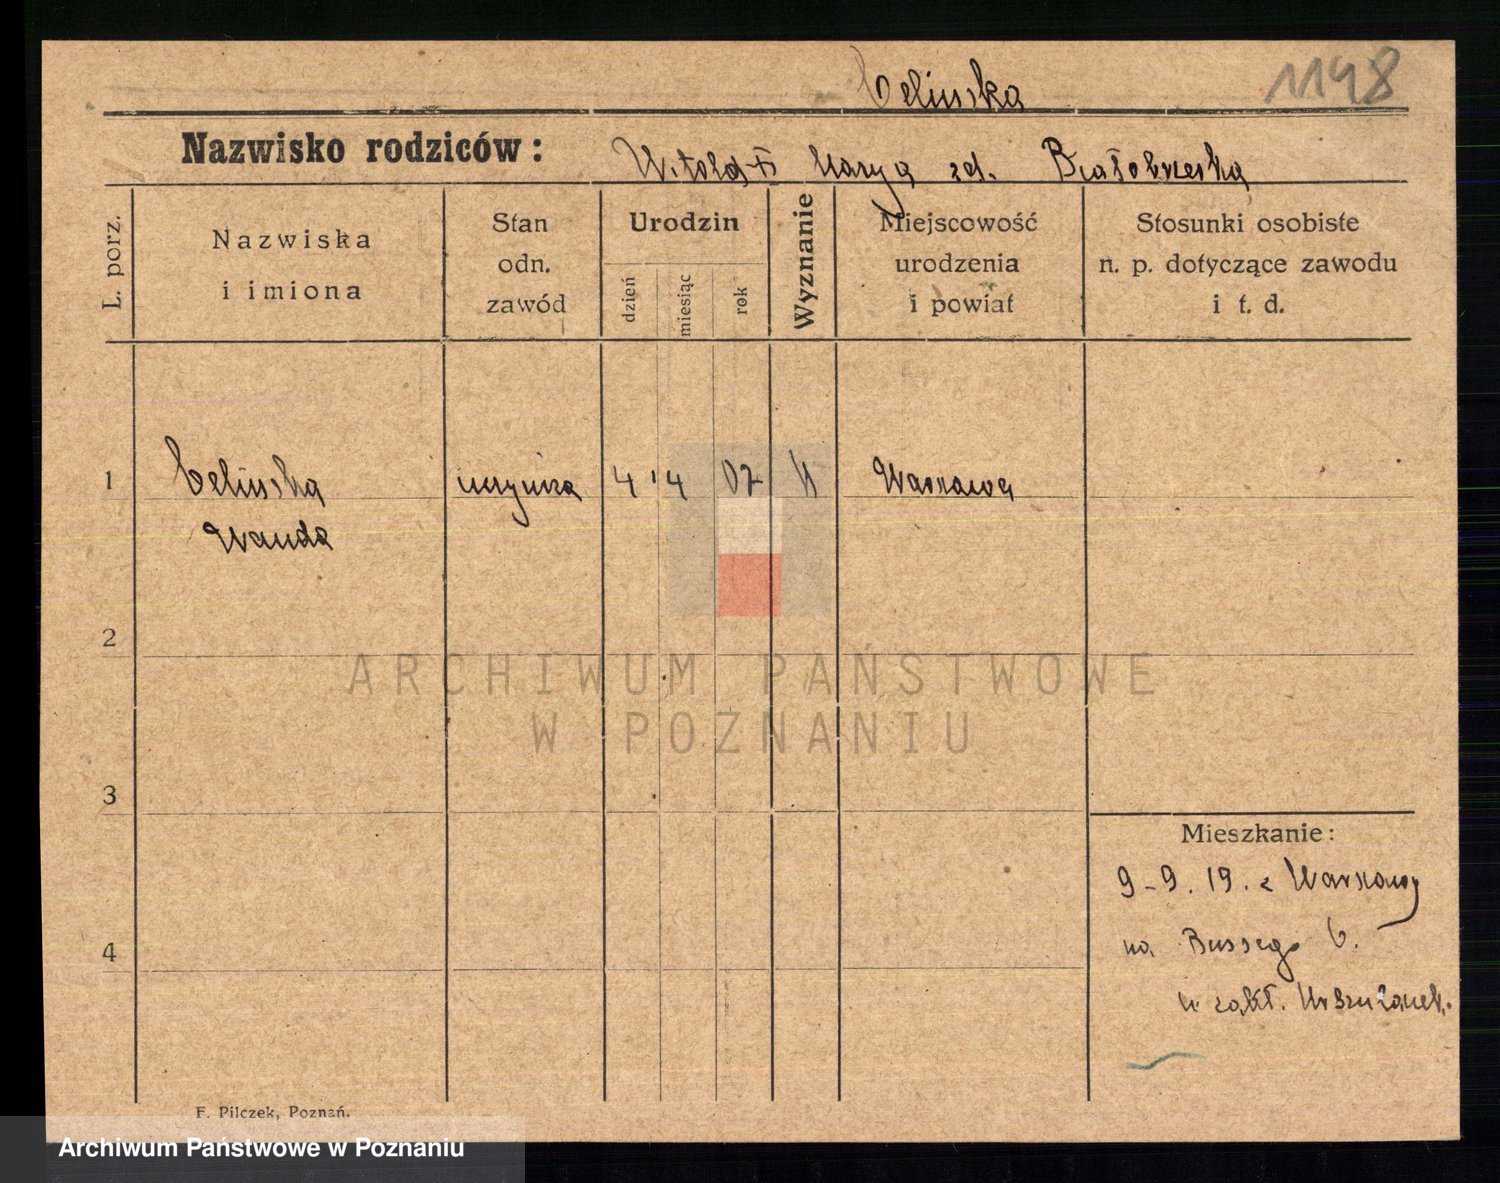 Celinska
1148
Nazwisko rodziców:
Witold + Marya zd. Białobrzeska
L. porz.
Nazwiska
i imiona
Stan
odn.
zawód
Urodzin
dzień
miesiąc
rok
Wyznanie
Miejscowość
urodzenia
i powiat
Stosunki osobiste
n. p. dotyczące zawodu
i t. d.
1
Celinska
Wanda
4 4 07
Warszawa
2
ARCHIWUM PAŃSTWOWE
W POZNANIU
3
Mieszkanie:
9-9. 19. z Warszawy
na Bussego 6.
4
w zakł. Urszulanek.
F. Pilczek, Poznań.
Archiwum Państwowe w Poznaniu